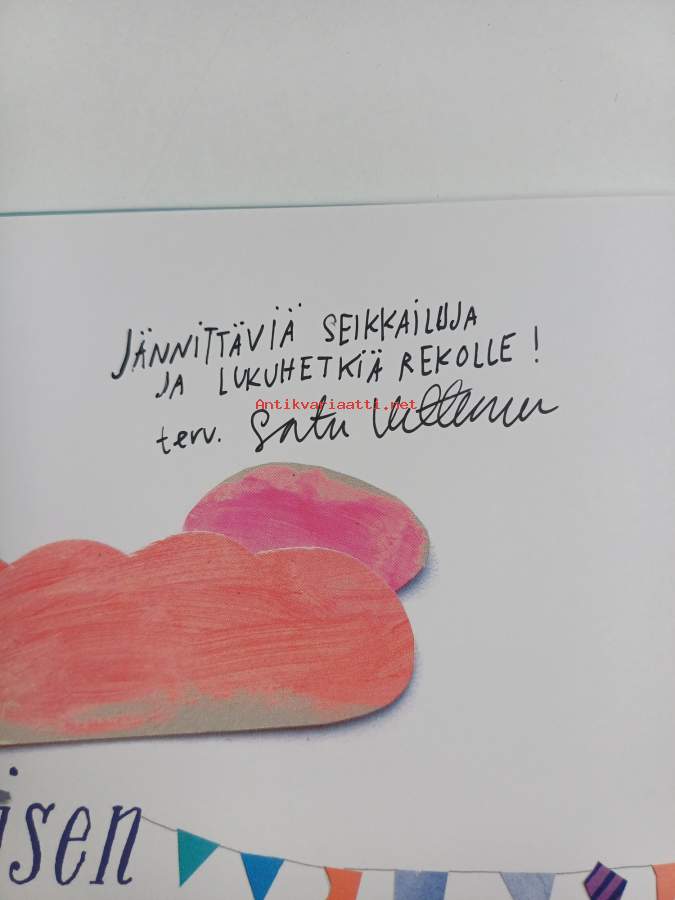 JÄNNITTÄVIÄ SEIKKAILUJA
JA LUKUHETKIÄ REKOLLE!
Antikvariaatti.net
terv. Satu
isen